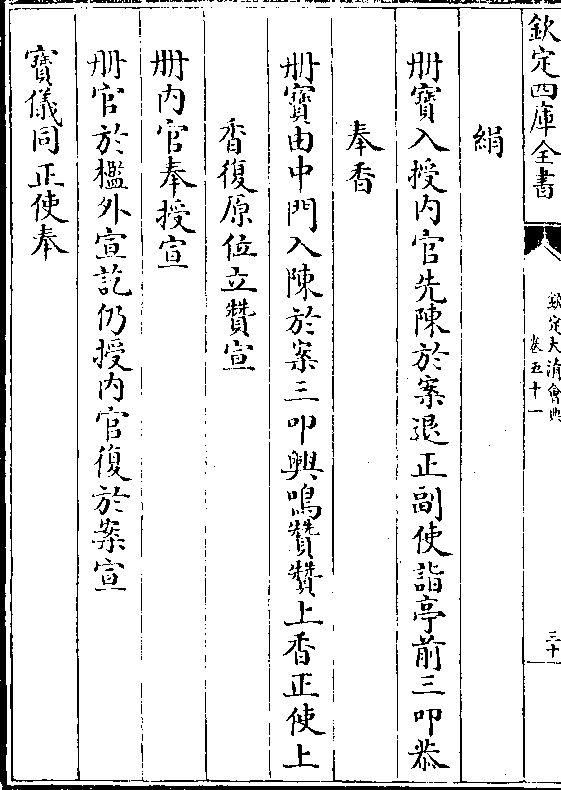 欽定四庫全書
欽定大清會典
卷五十一
三十
絹
冊寶入授内官先陳於案退正副使詣亭前三叩恭
奉香
冊寶由中門入陳於案三叩興鳴贊贊上香正使上
香復原位立贊宣
冊内官奉授宣
冊官於檻外宣訖仍授内官復於案宣
寶儀同正使奉